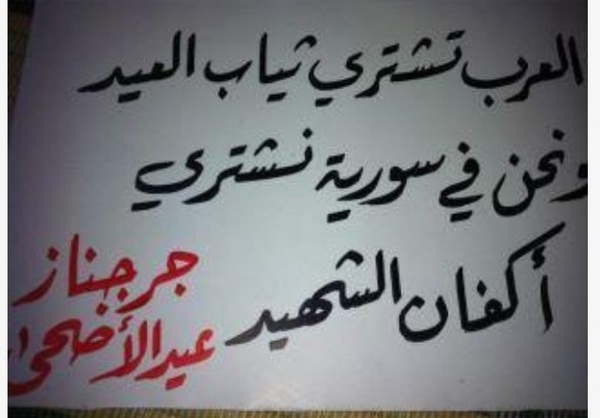 العرب تشتري ثياب العيد
ونحن في سورية نشتري
أكفان الشهيد
جرجناز
عيد الأضحى